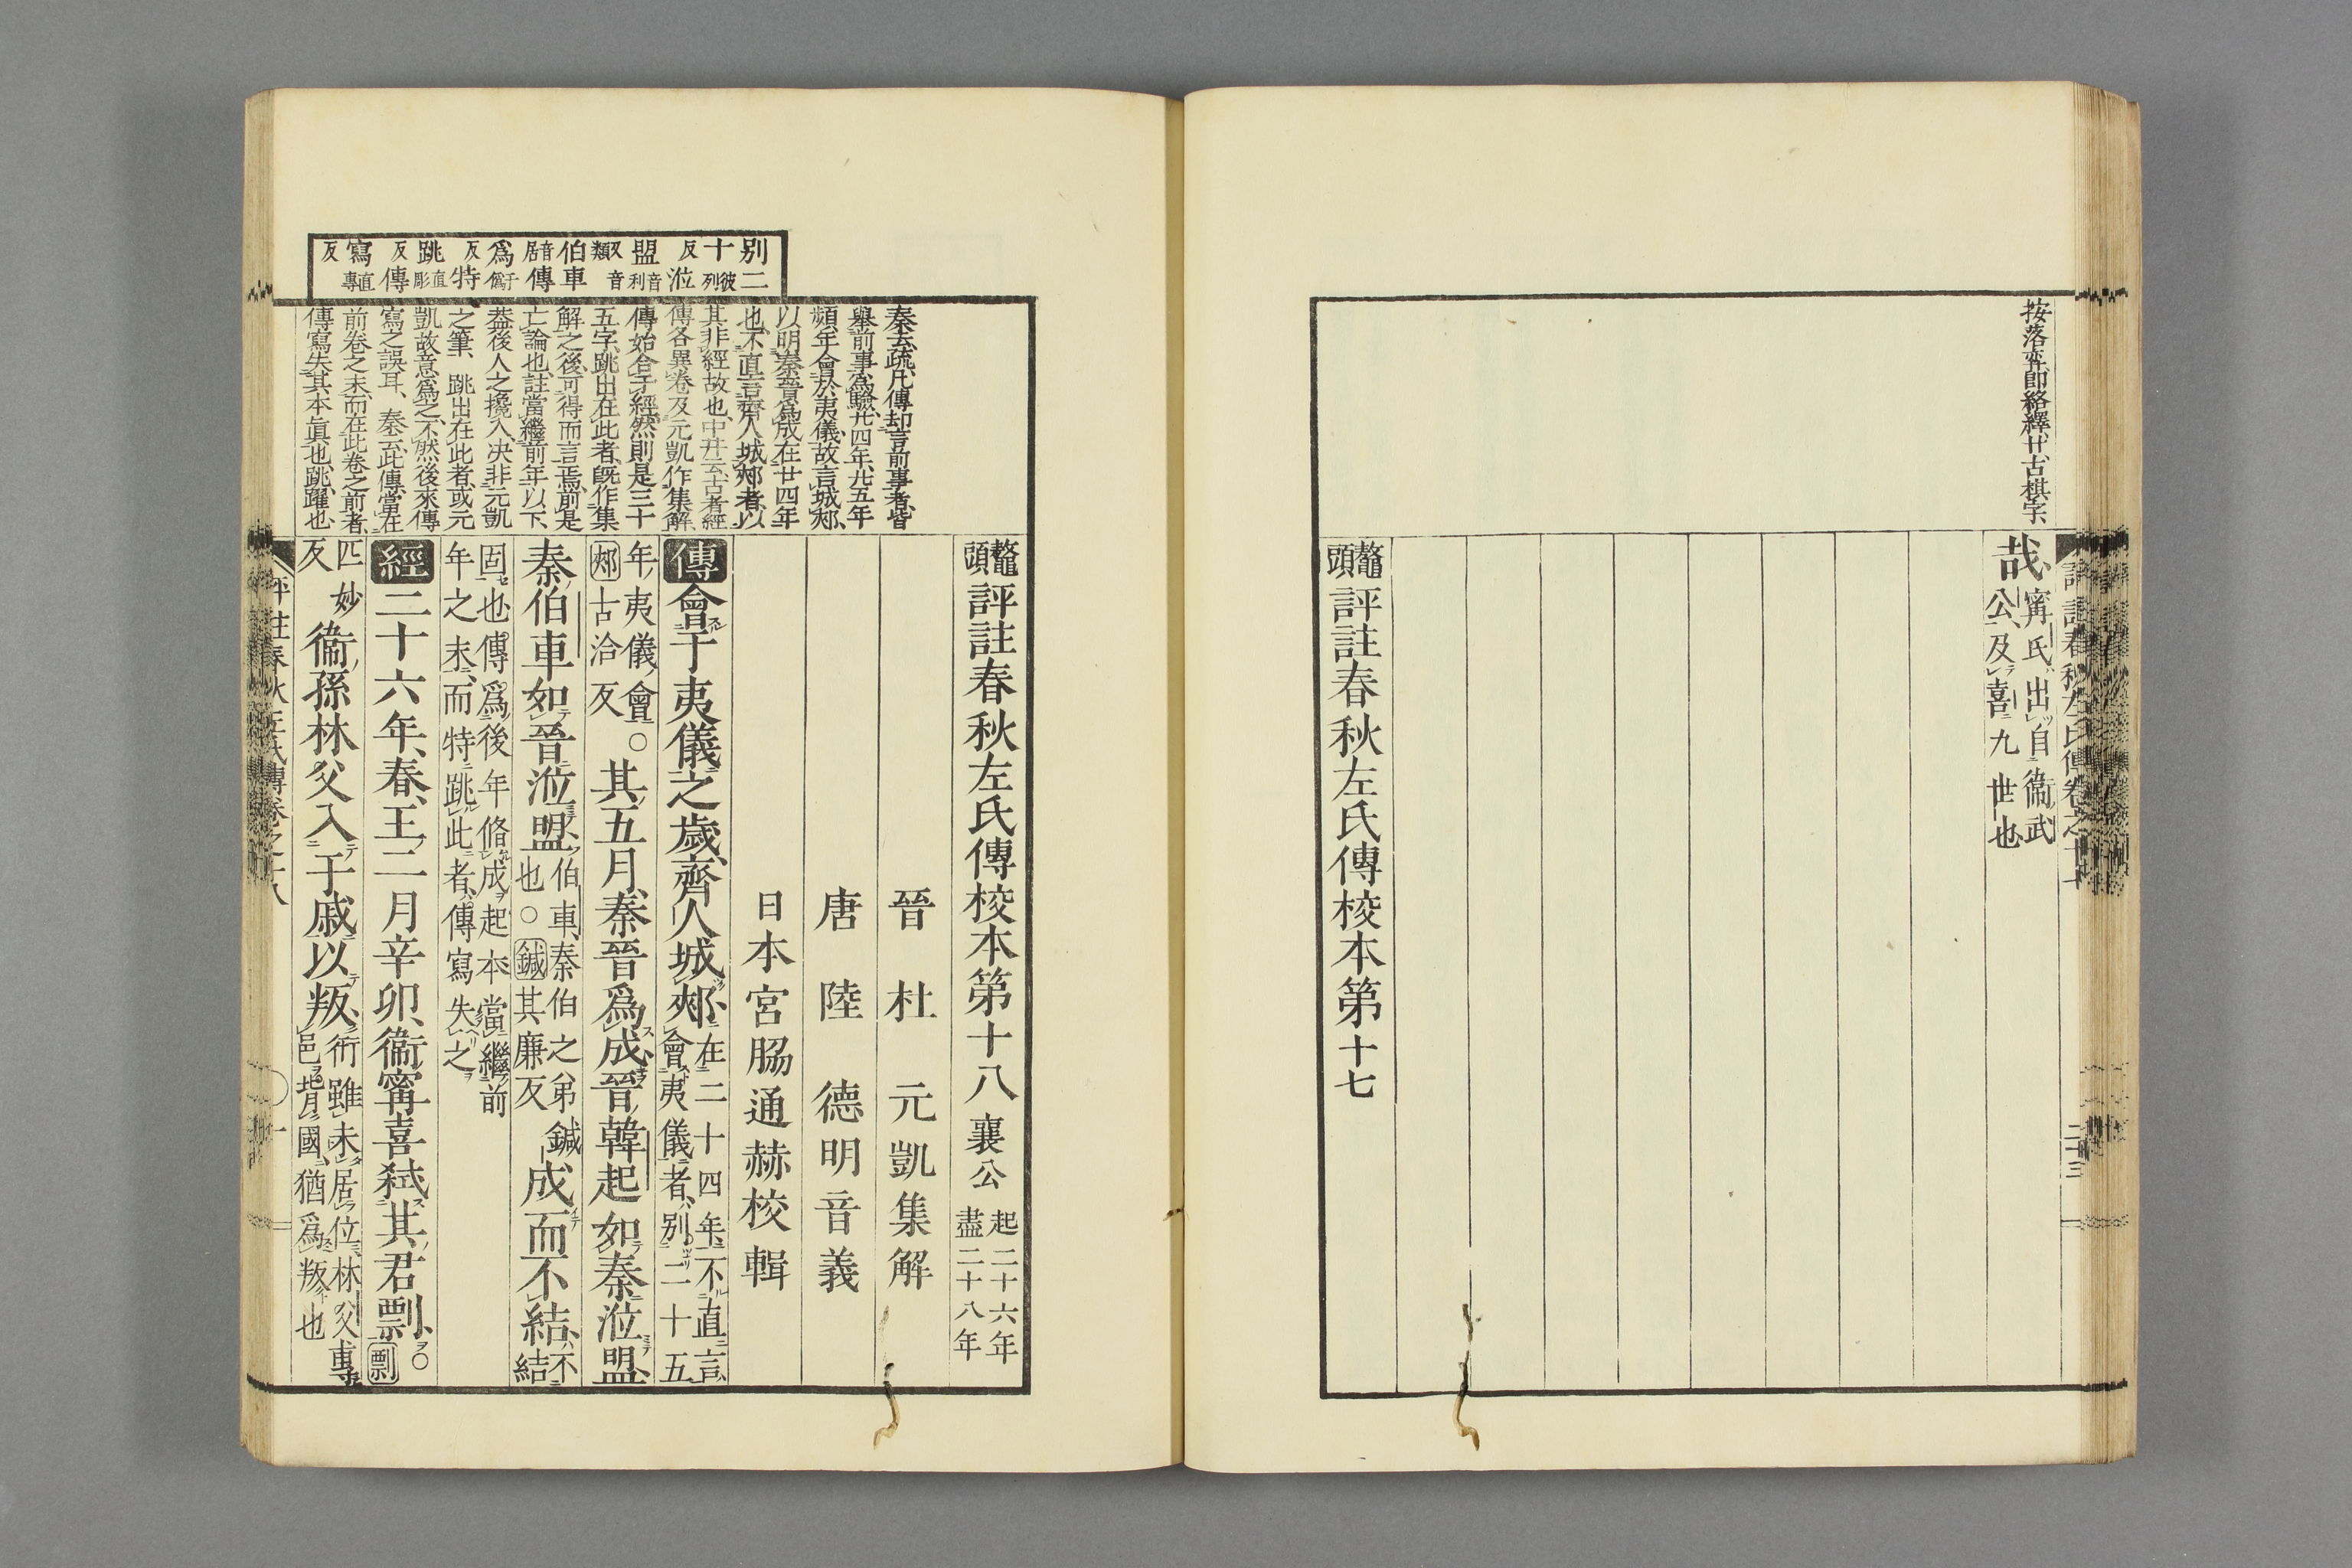 按落弈即絡繹、廿、古棋字、
哉、
寗氏出自衛武
公、及喜九世也
鼇頭評註春秋左氏傳校本第十七
二十三
別二
十彼列
反 涖
盟音利
又音
類
伯車
音居 傳
爲于僞
反 特
跳直彫
反 傳
寫直專
反
秦云、疏、凡傳却言前事者、皆
舉前事爲驗、廿四年、廿五年
頻年會於夷儀、故言城郟、
以明秦晉爲成在廿四年
也、不直言齊人城郟者、以
其非經故也、中井云、古者經
傳各異卷、及元凱作集解、
傳始合于經、然則是三十
五字、跳出在此者、既作集
解之後、可得而言焉、前是
亡論也、註當繼前年以下、
葢後人之攙入、決非元凱
之筆、跳出在此者、或元
凱故意爲之、不然後來傳
寫之誤耳、秦云、此傳當在
前卷之末、而在此卷之前者、
傳寫失其本眞也、跳、躍也、
鼇頭評註春秋左氏傳校本第十八 襄公 起二十六年 盡二十八年
晉 杜 元凱集解
唐 陸 德明音義
日本宮脇通赫校輯
傳會于夷儀之歲、齊人城郟、在二十四年、不直言會夷儀者、別二十五
年夷儀會○郟古洽反 其五月、秦晉爲成、晉韓起如秦涖盟、
秦伯車如晉涖盟、伯車、秦伯之弟鍼也○鍼其廉反 成而不結、不結
固也、傳爲後年脩成起本、當繼前
年之末、而特跳此者、傳寫失之
經二十六年、春、王二月辛卯、衞寗喜弑其君剽、○剽
匹妙反 衞孫林父入于戚以叛、衎雖未居位、林父專邑背國、猶爲叛也